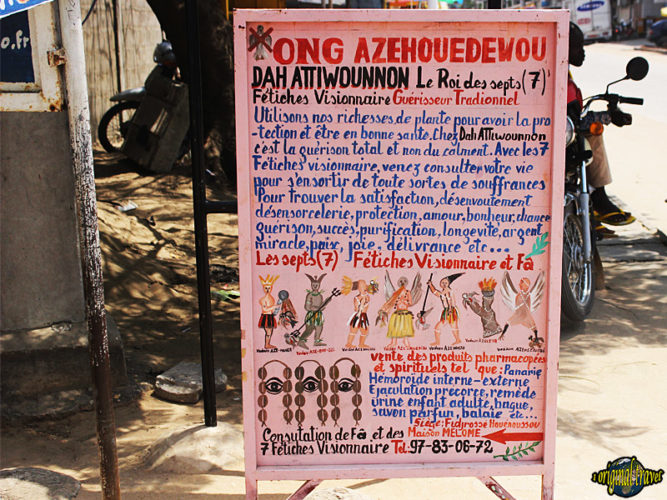 o.fr
ONG AZEHOUEDEWOU
DAH ATTIWOUNNON Le Roi des septs (7)
Fétiches Visionnaire Guérisseur Traditionnel
Utilisons nos richesses de plante pour avoir la pro-
-tection et être en bonne santé. Chez Dah ATTIWOUNNON
c'est la guérison total et non du calment. Avec les 7
Fétiches visionnaire, venez consulter votre vie
pour s'ensortir de toute sortes de souffrances
Pour trouver la satisfaction, désenvoutement
désensorcelerie, protection, amour, bonheur, chance
guérison, succès, purification, longevité, argent
miracle, paix, joie, délivrance etc...
Les septs (7) Fétiches Visionnaire et Fâ
vente des produits pharmacopées
et spirituels tel que: Panarie
Hémoroïde interne-externe
Ejaculation procorce, remède
urine enfant adulte, bague,
savon parfun, balaie etc...
Siège: Fidjrosse Houenoussou
Maison MELOME
Consutation de Fâ et des
7 Fétiches Visionnaire Tel: 97-83-06-72
original travel